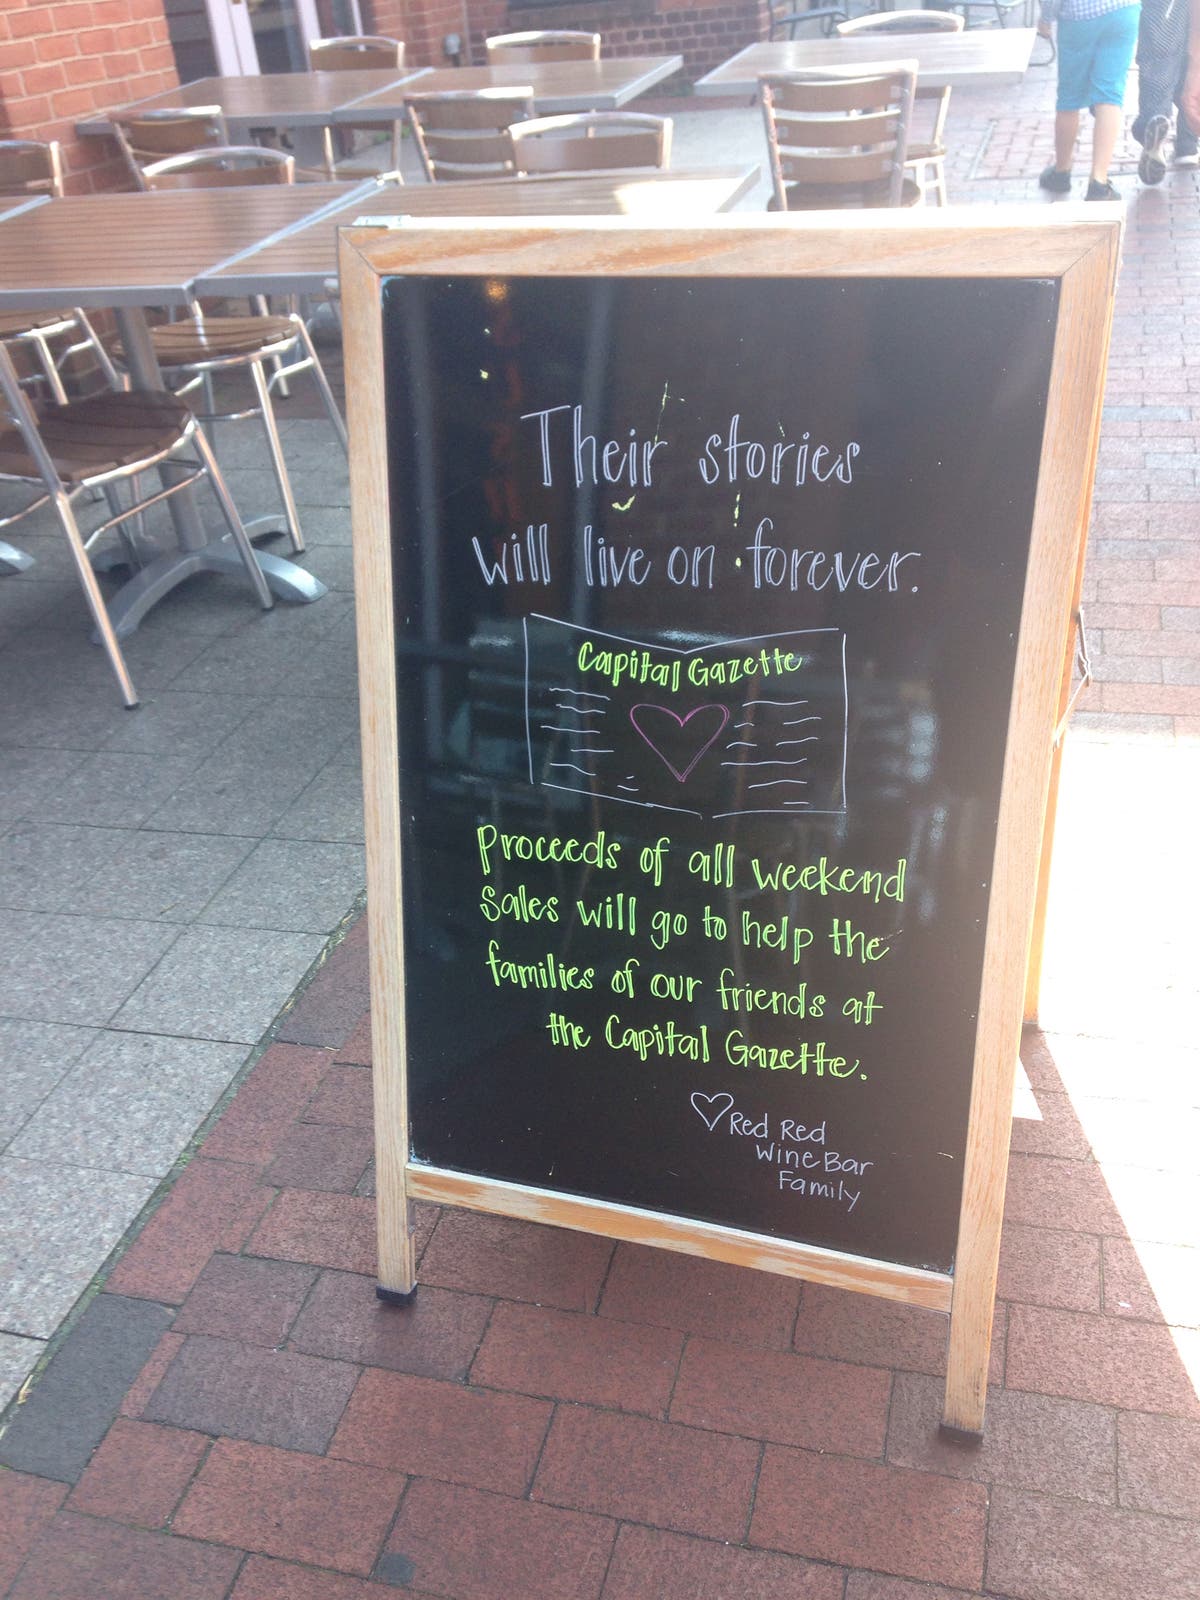 Their stories
will live on forever.
Capital Gazette
Proceeds of all weekend
sales will go to help the
families of our friends at
the Capital Gazette.
Red Red
Wine Bar
Family